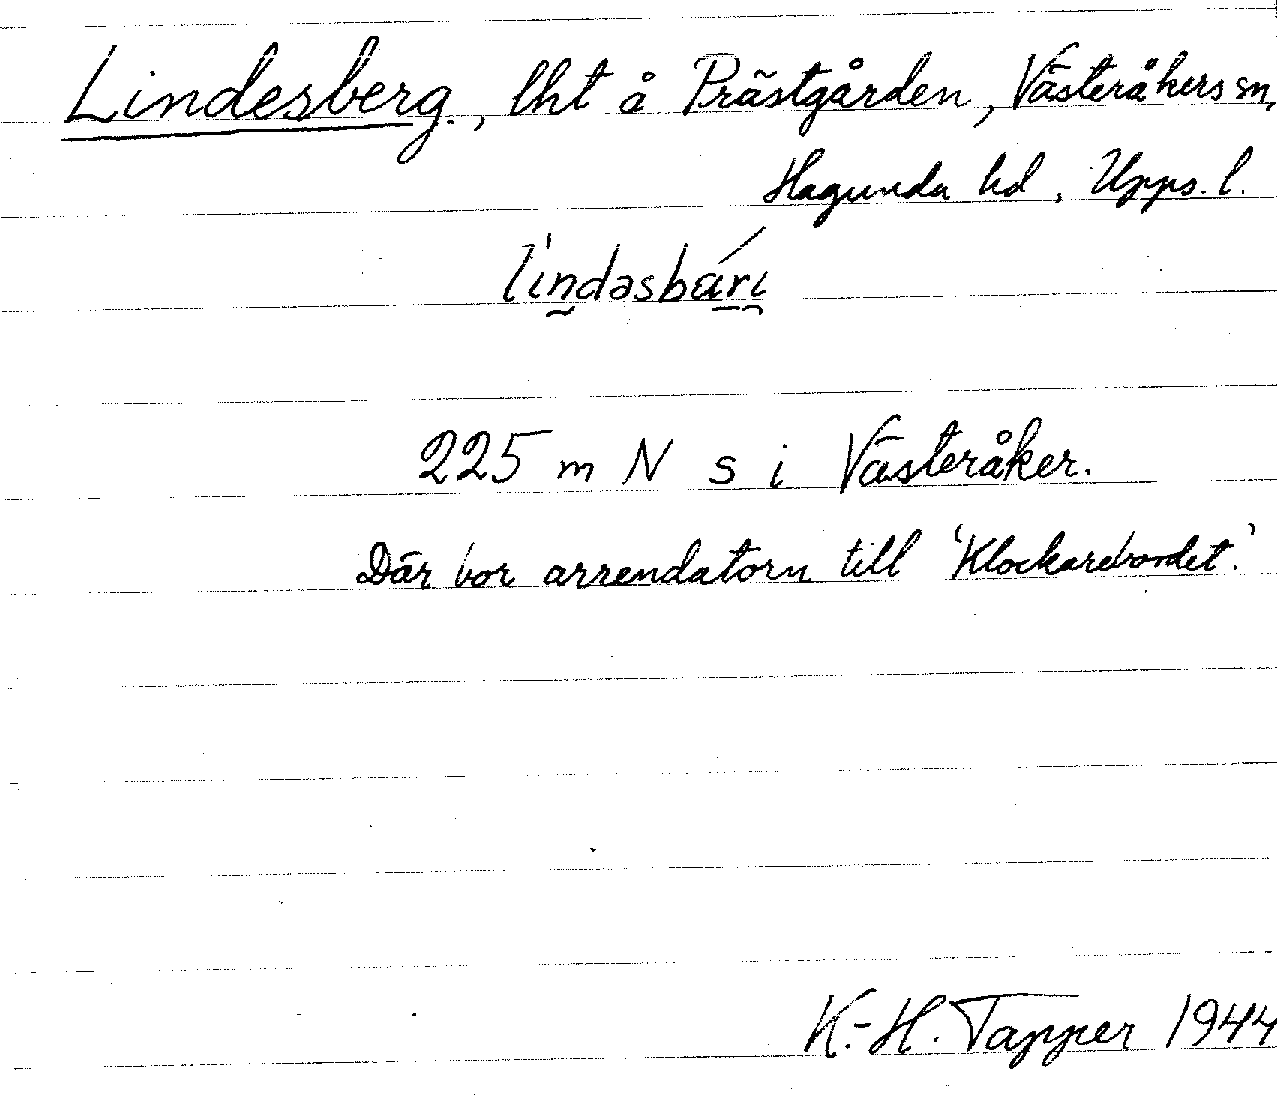 Lindesberg., lht å Prästgården, Västeråkers sn,
Hagunda hd, Upps. l.
lindəsbári
225 m N s i Västeråker.
Där bor arrendatorn till 'Klockarebordet'.
K.-H. Tapper 1944